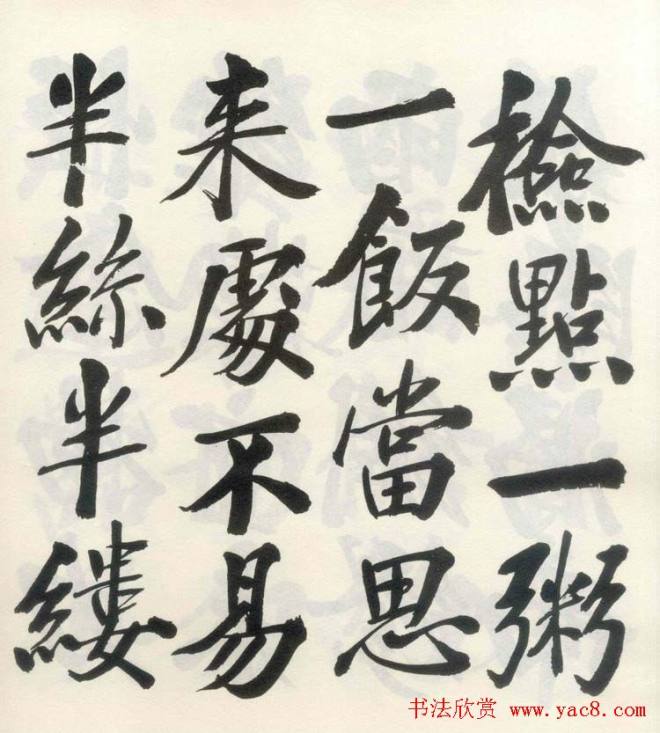 檢點一粥
一飯當思
来處不易
半絲半縷
书法欣赏 www.yac8.com